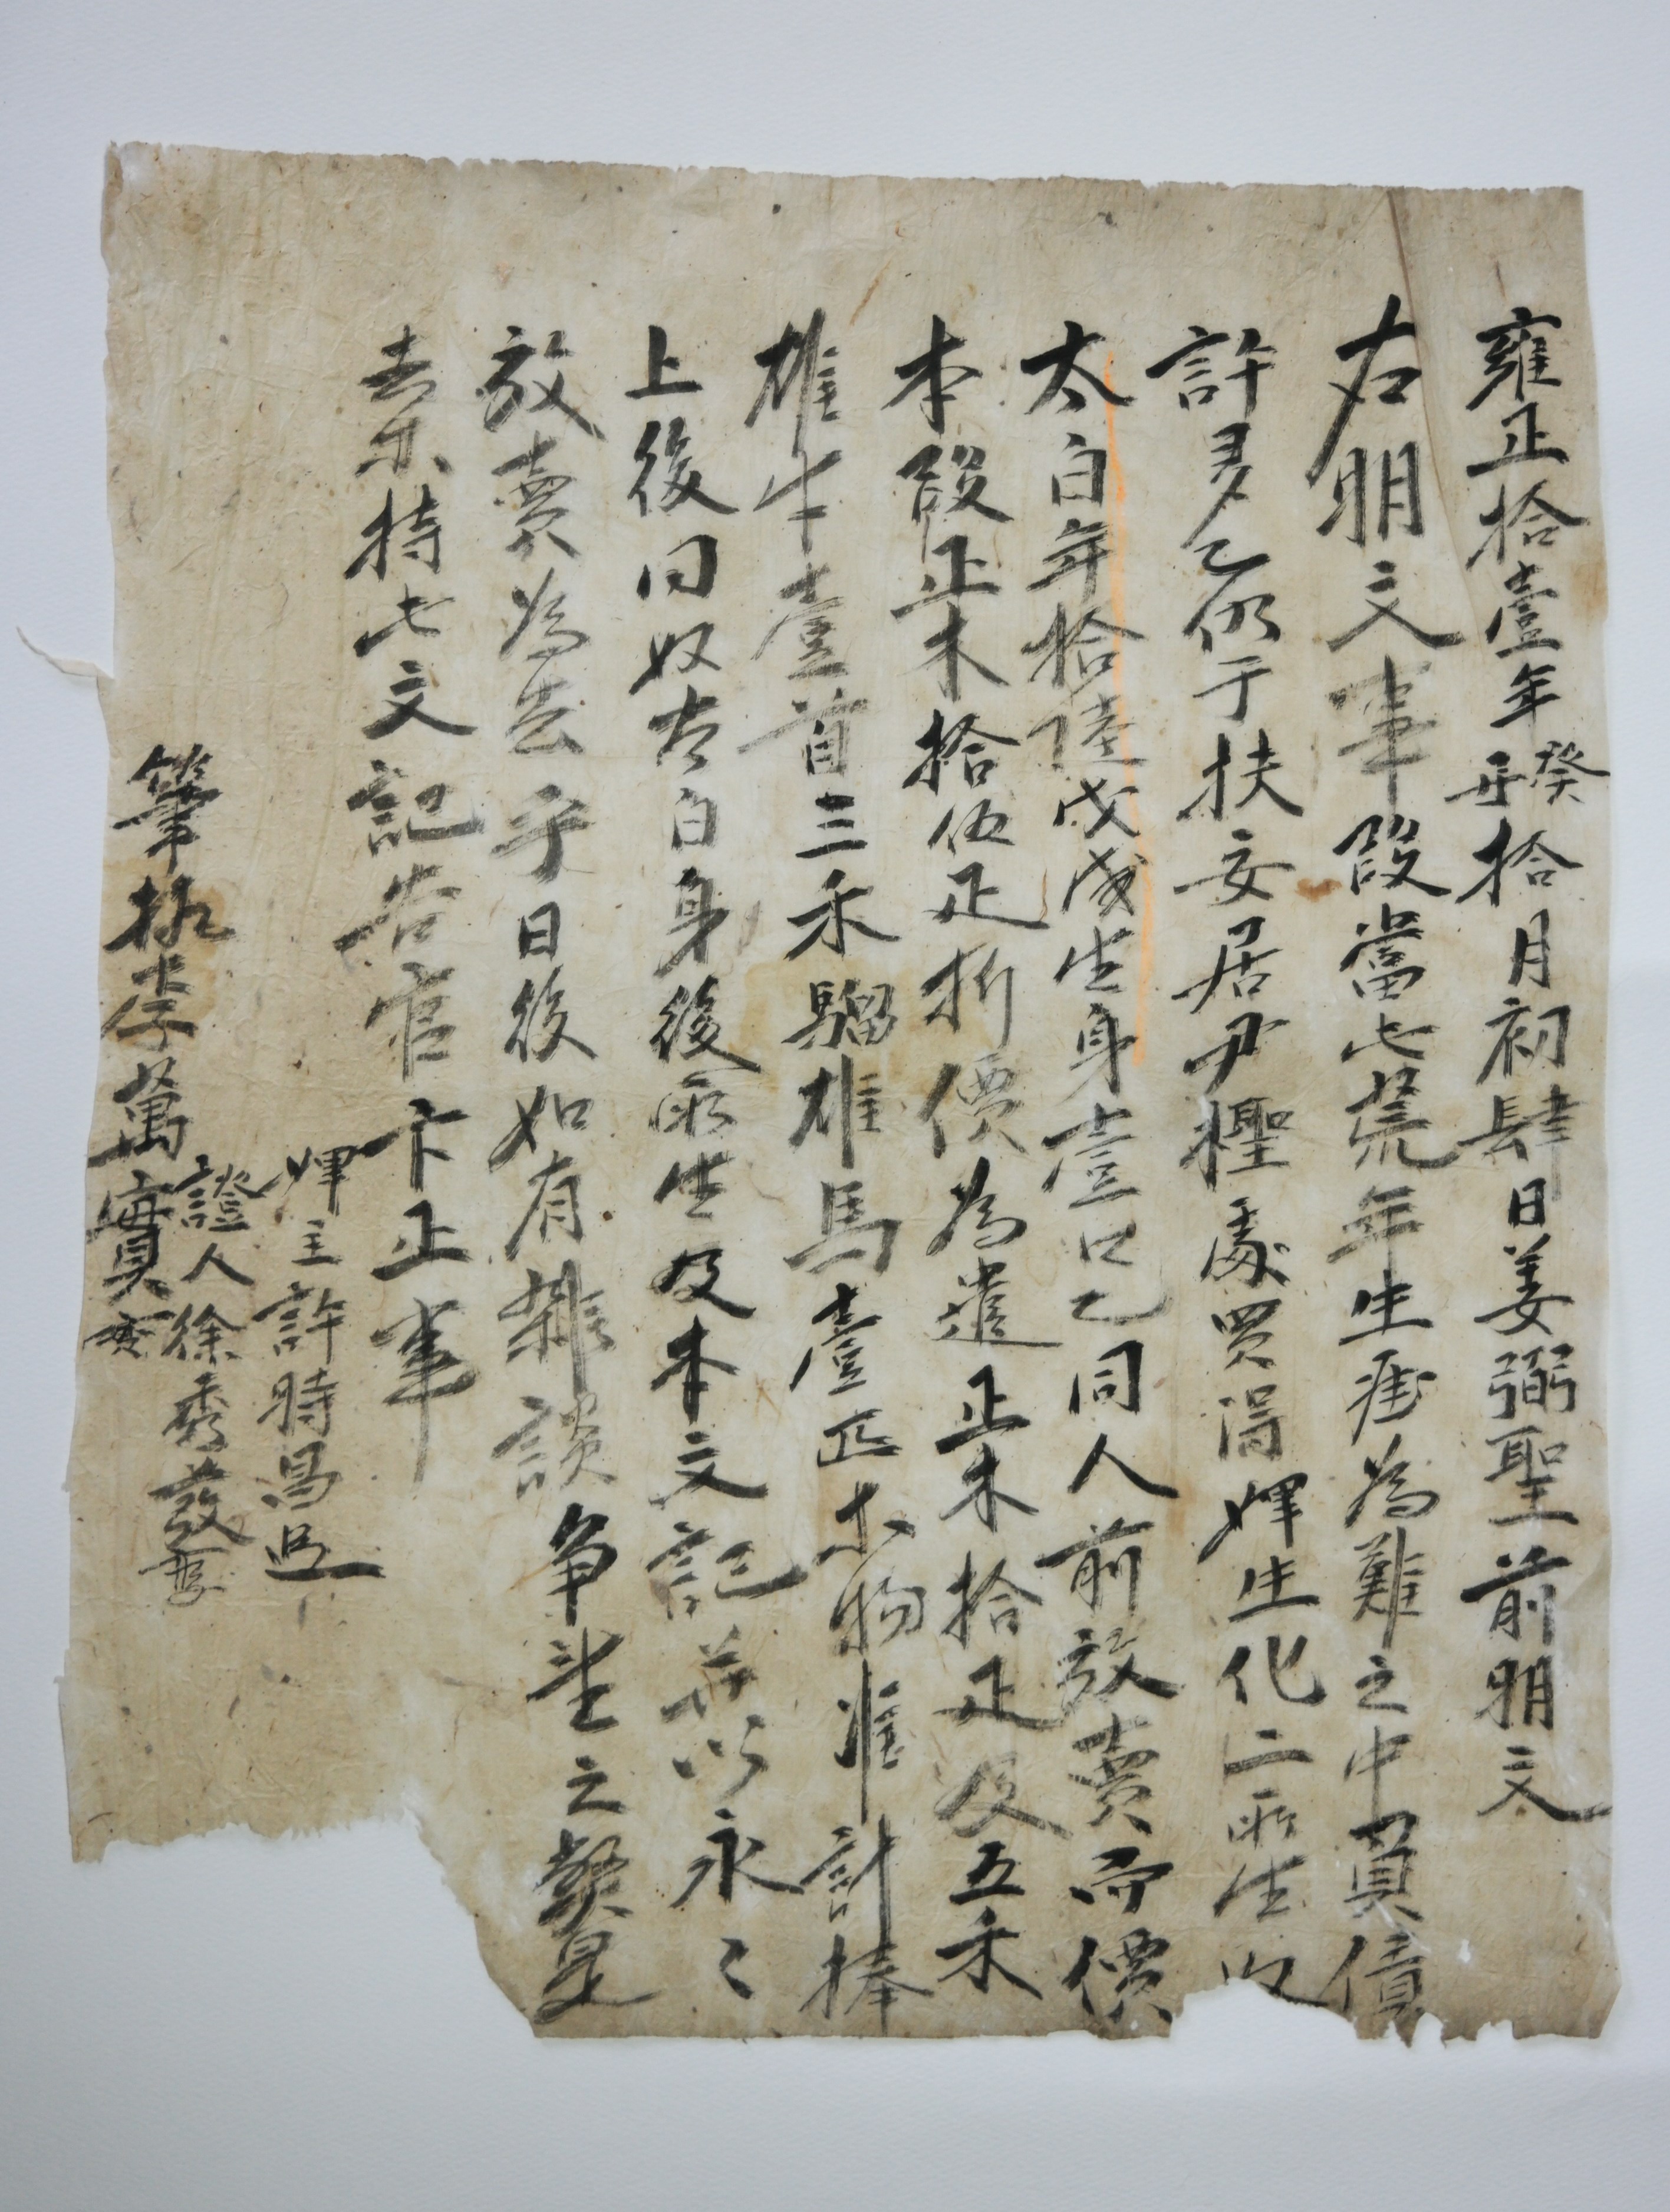 雍正拾壹年癸丑拾月初肆日姜弼聖前明文
右明文事段當此荒年生理爲難之中負債
許多乙仍于扶安居尹檉處買得婢生化二所生奴
太白年拾陸戊戌生身壹口乙同人前放賣而價
本段正木拾伍疋折價爲遣正木拾疋及五禾
雄牛壹首三禾騮雄馬壹匹木物准計捧
上後同奴太白身後所生及本文記幷以永〻
放賣爲去乎日後如有雜談爭望之獘是
去等持此文記告官卞正事
婢主許時昌
證人徐秀發
筆執李萬實